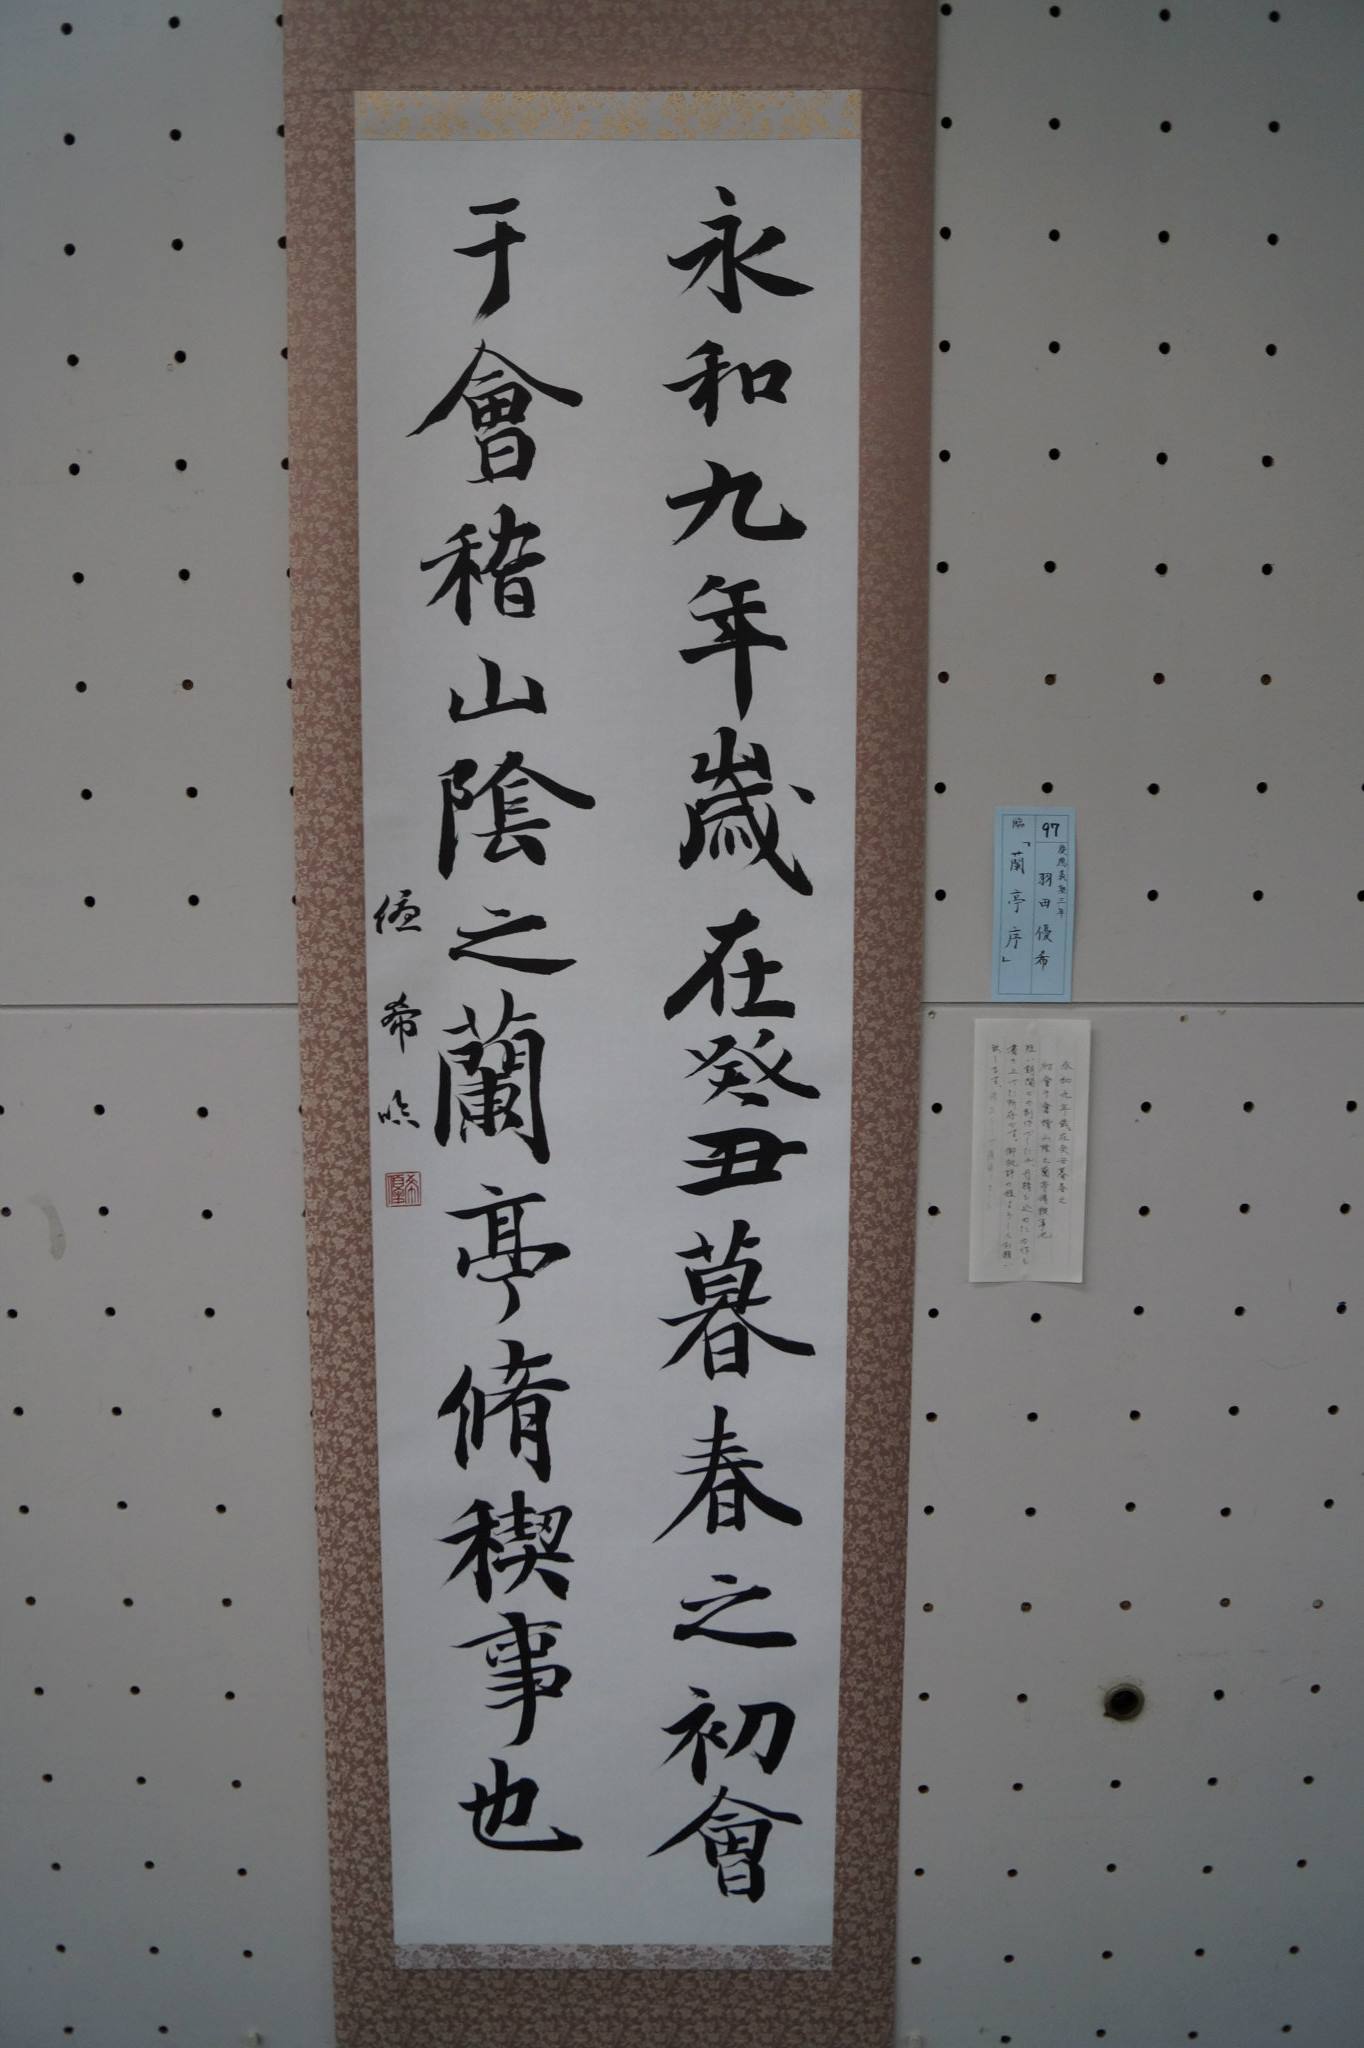 永和九年歳在癸丑暮春之初會
于會稽山陰之蘭亭脩稧事也
優希臨
97
慶應義塾三年
羽田優希
臨「蘭亭序」
永和九年歳在癸丑暮春之
初會于會稽山陰之蘭亭脩稧事也